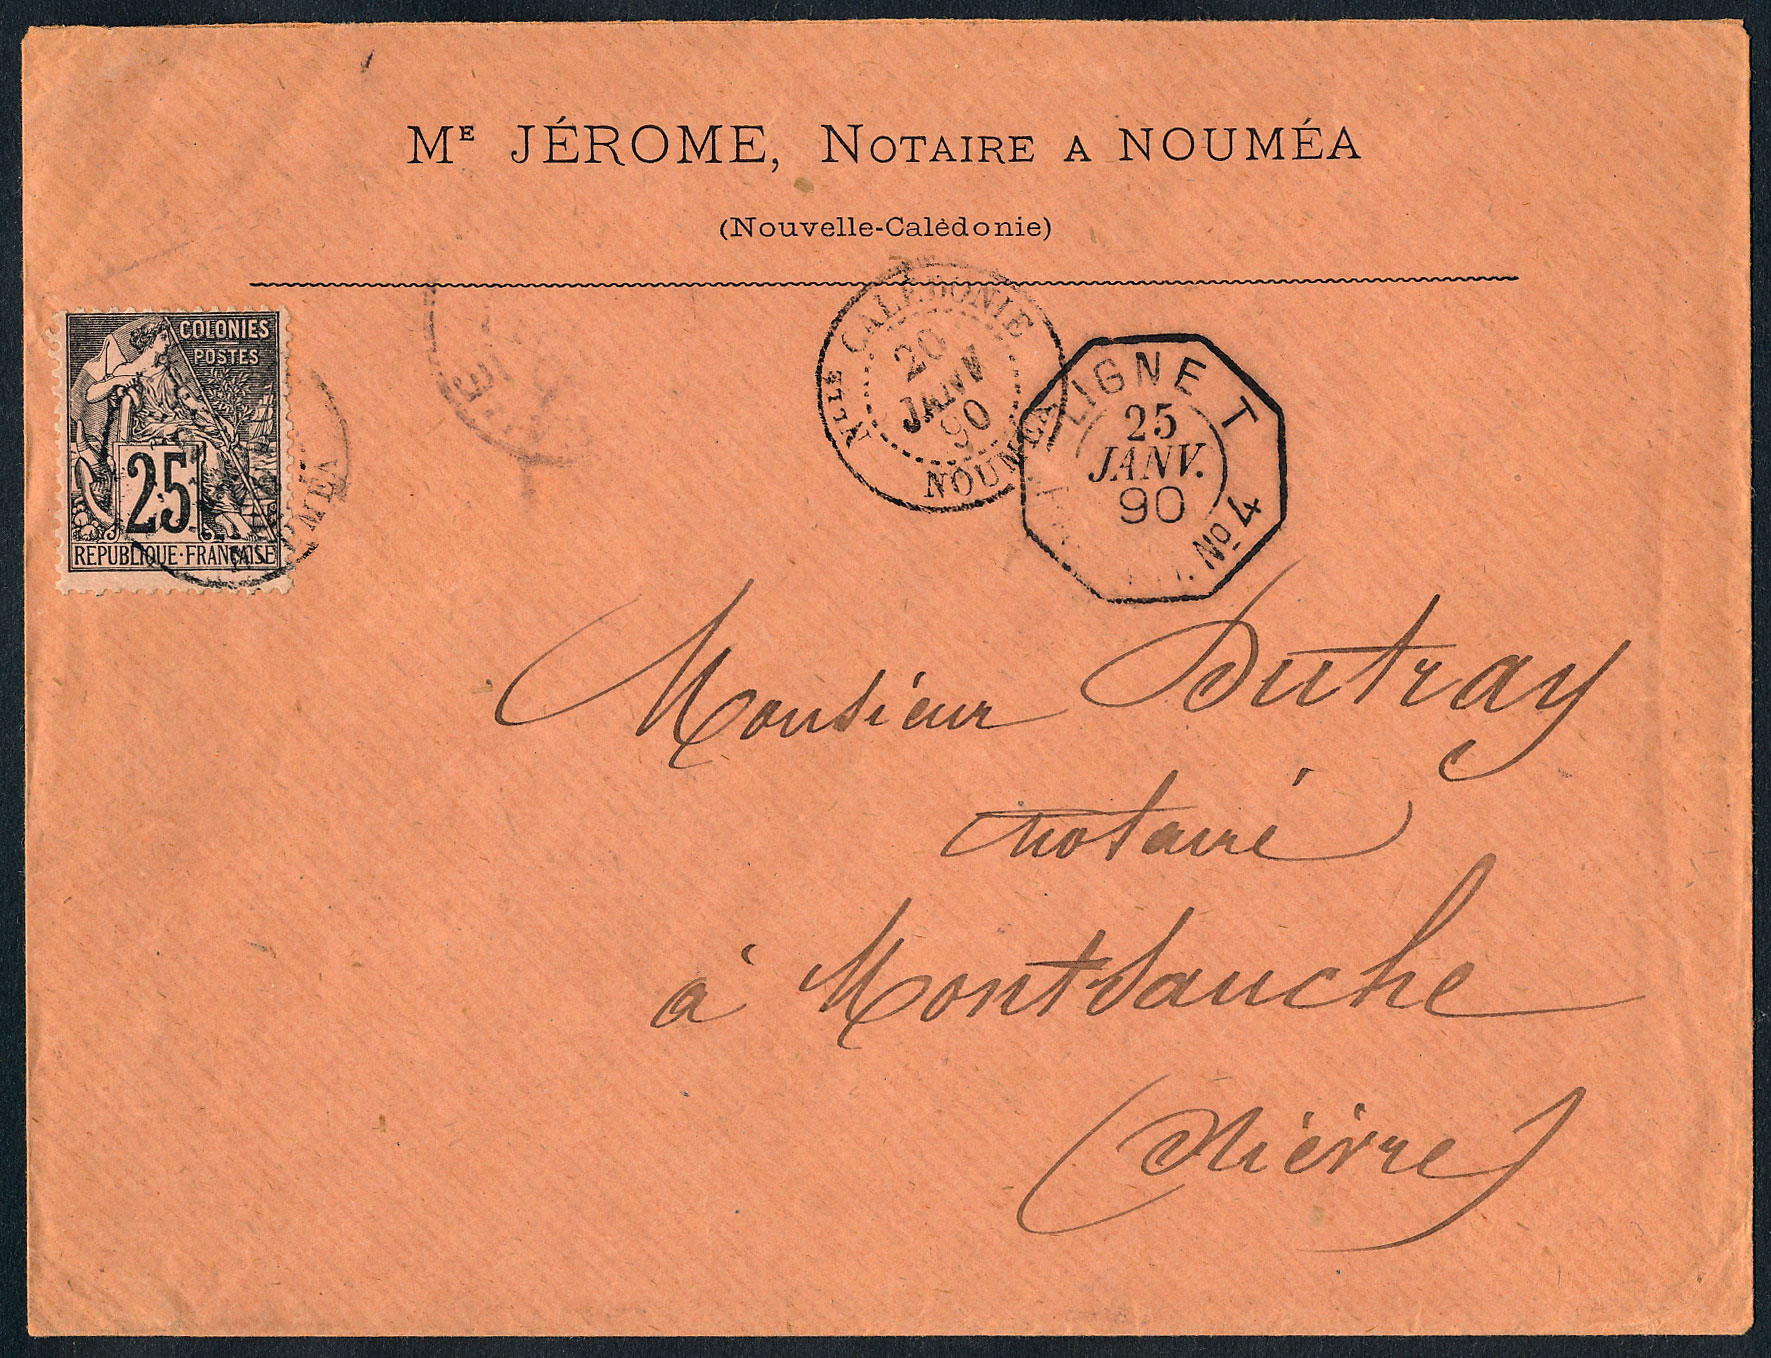 ME JÉROME, NOTAIRE A NOUMÉA
(Nouvelle-Calédonie)
COLONIES
POSTES
25
REPUBLIQUE·FRANÇAISE
NLLE CALEDONIE
20
JANV
90
NOUMEA
LIGNE T
25
JANV.
90
Nº 4
Monsieur Dutray
notaire
à Montsauche
(Nièvre)